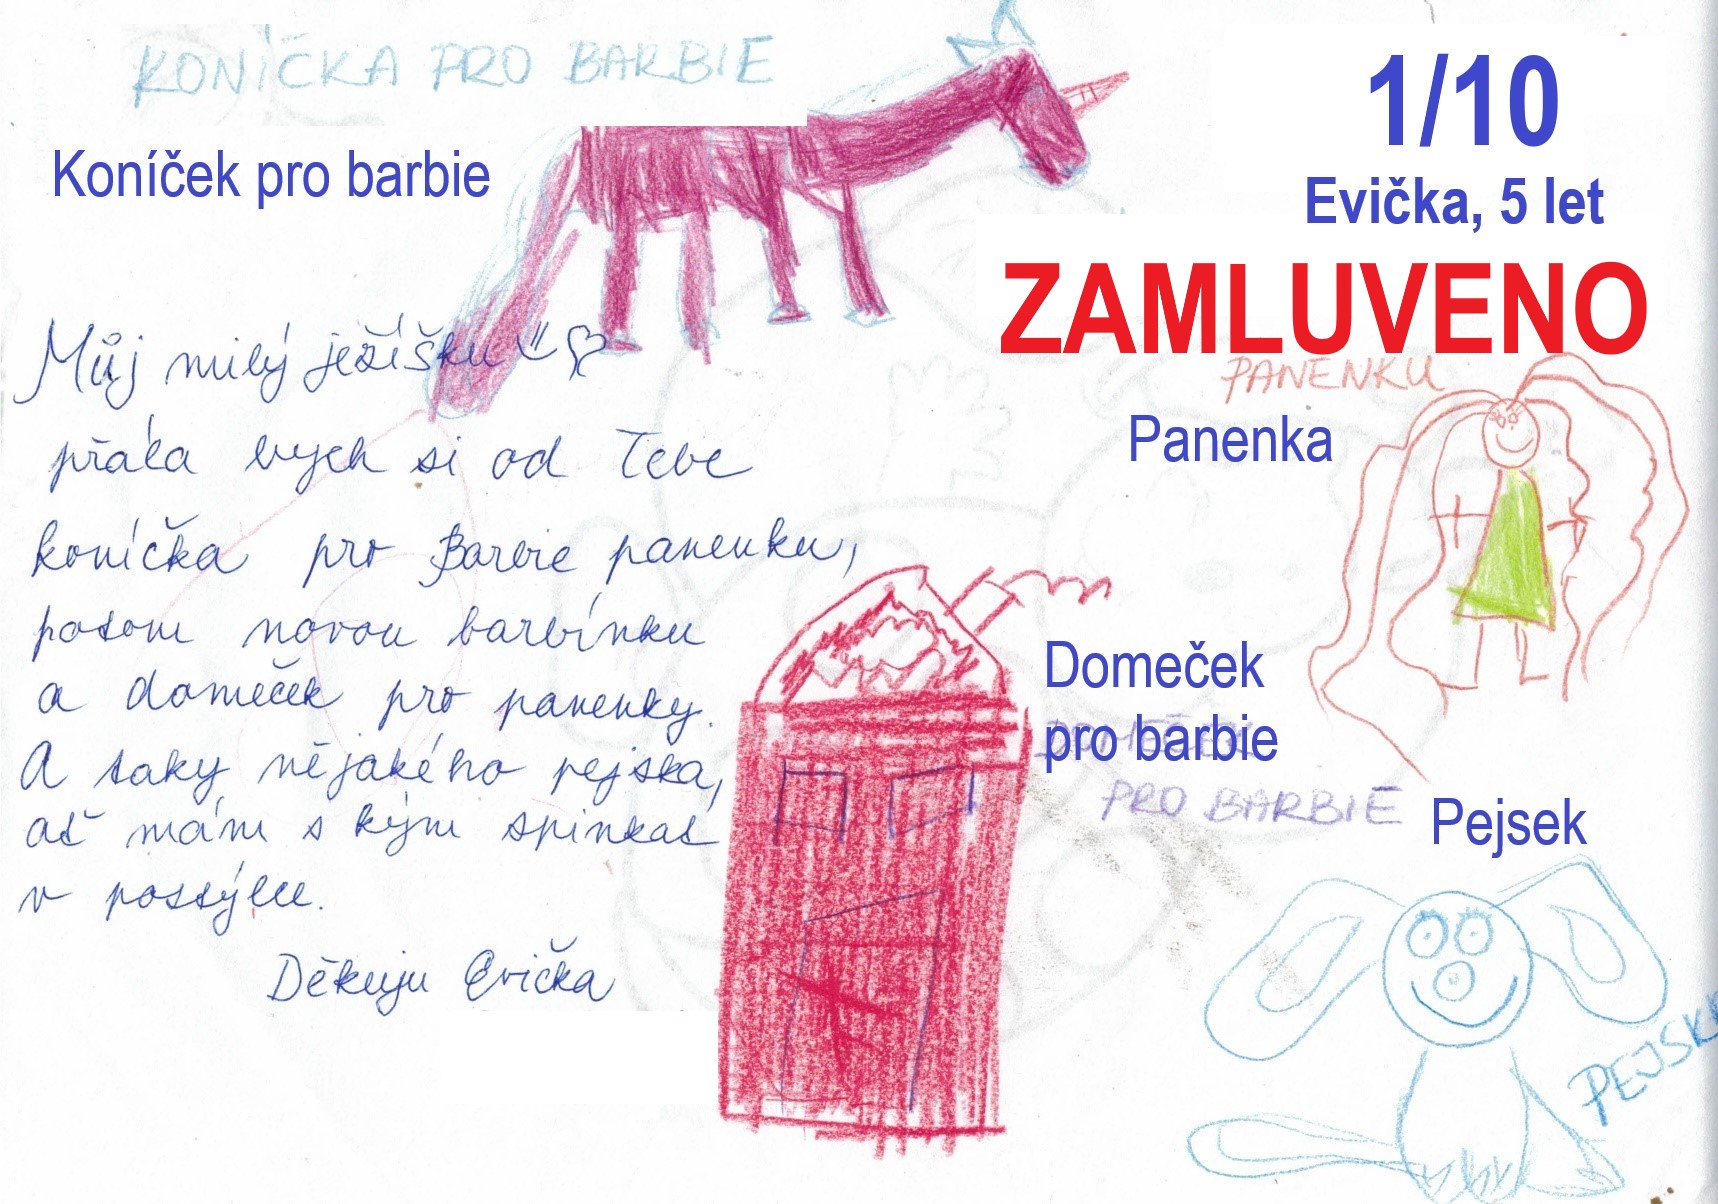 KONÍČKA PRO BARBIE
1/10
Koníček pro barbie
Evička, 5 let
ZAMLUVENO
Můj milý ježíšku
PANENKU
Panenka
přála bych si od Tebe
koníčka pro Barbie panenku,
potom novou barbínku
a domeček pro panenky.
Domeček
pro barbie
DOMEČEK
PRO BARBIE
A taky nějakého pejska,
ať mám s kým spinkat
v postýlce.
Děkuju Evička
Pejsek
PEJSK